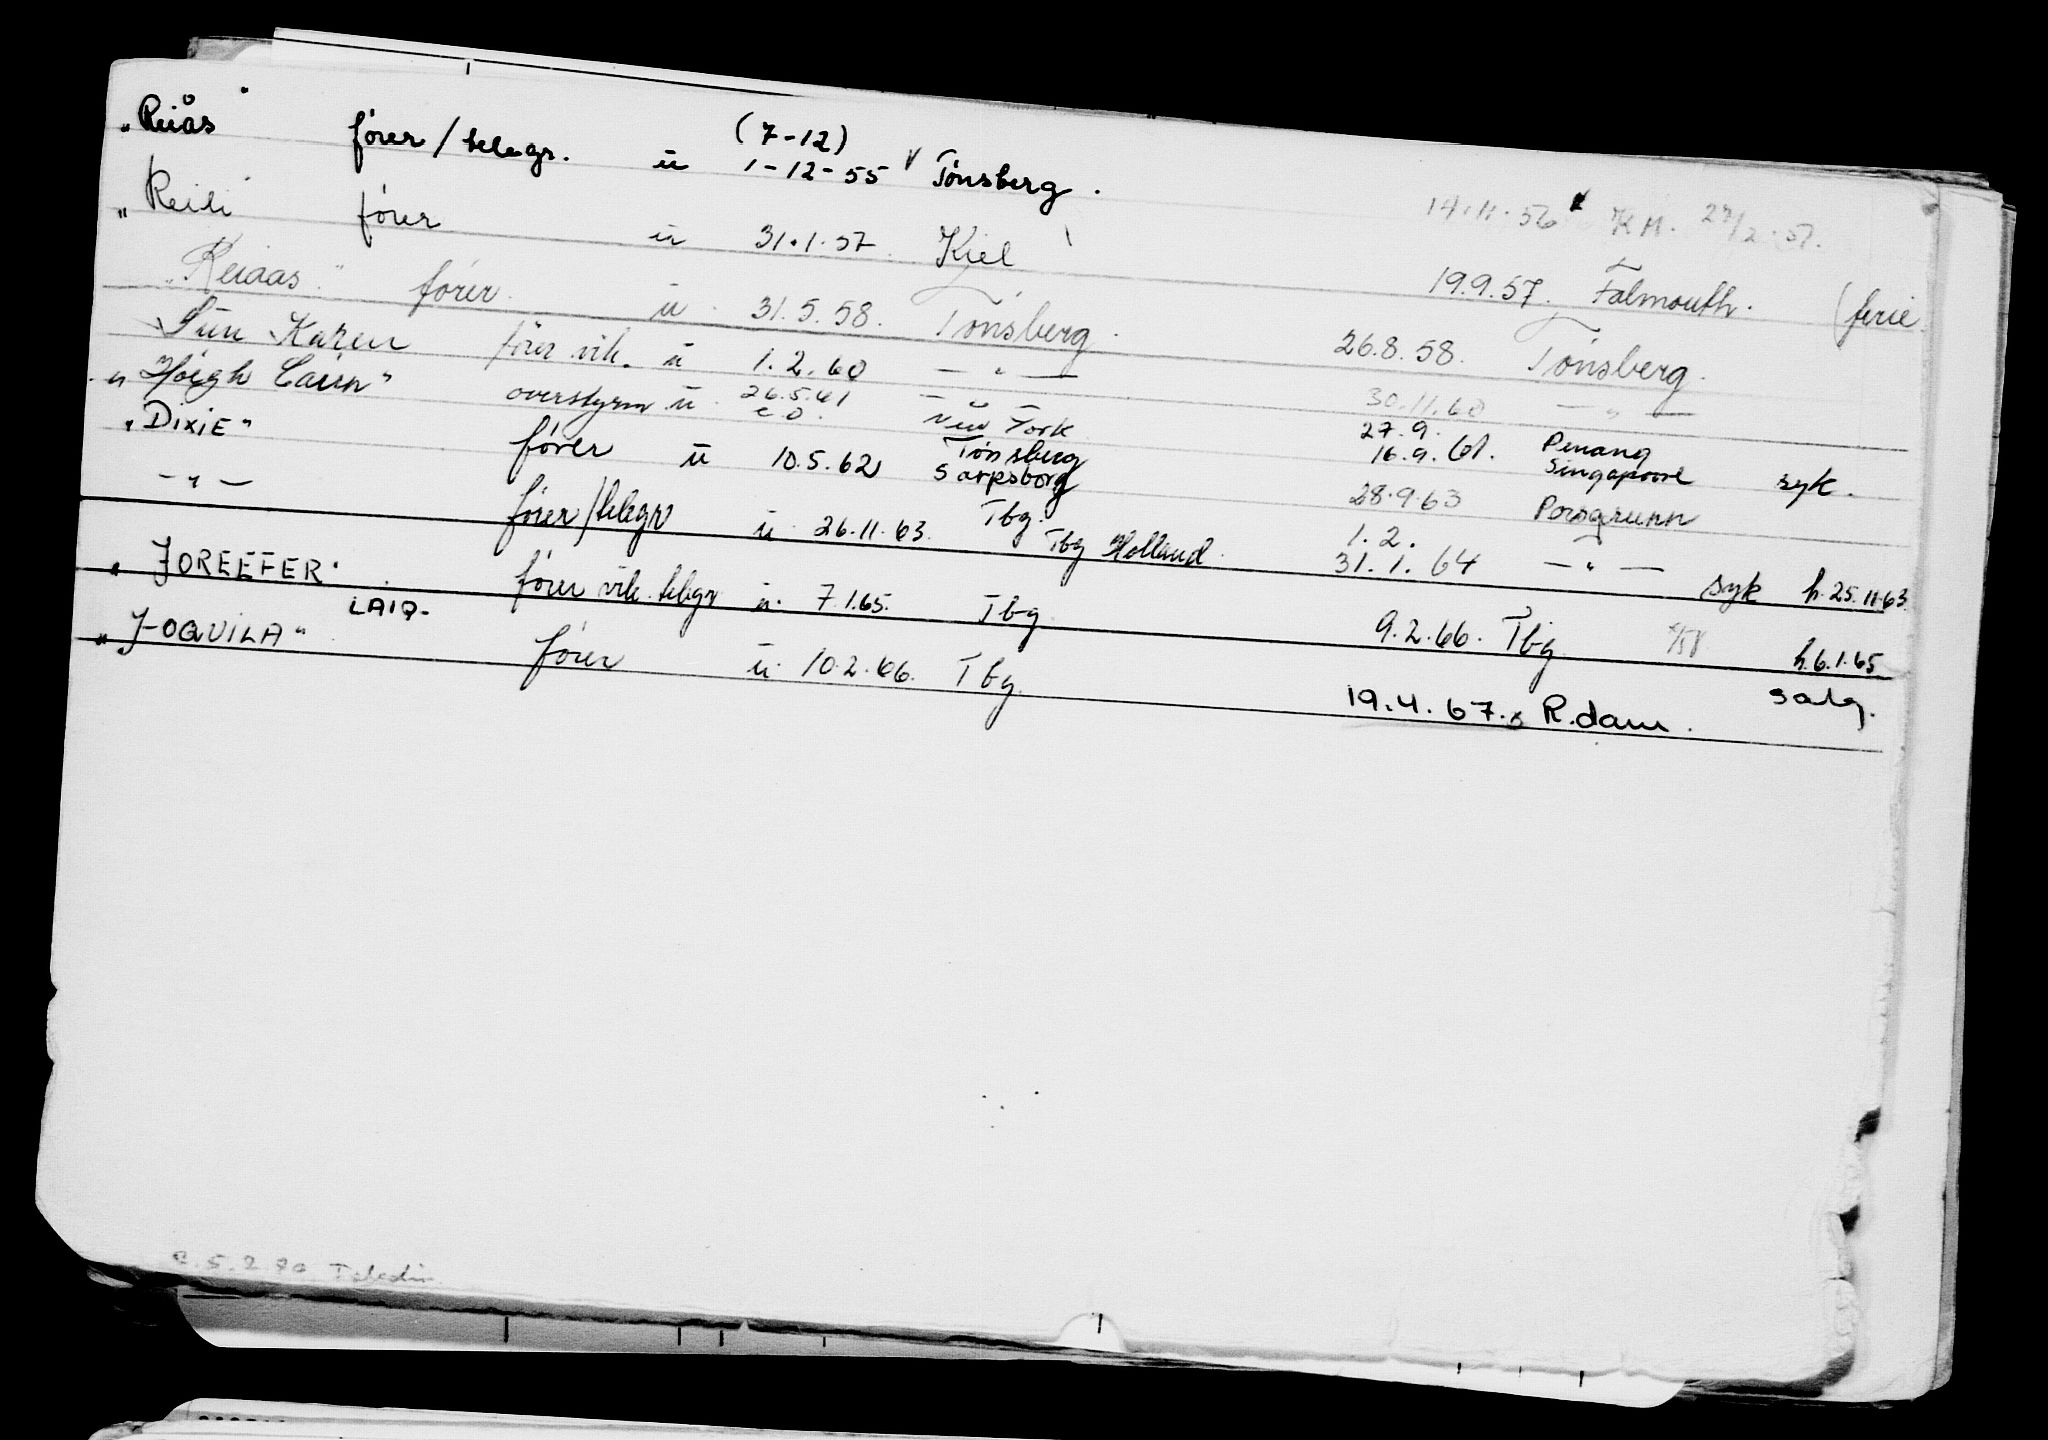 "Reiås" fører/telegr. u (7-12) 1-12-55 Tønsberg. 14.11.56 K.M. 27/2.57.
"Reili" fører u 31.1.57 Kiel 19.9.57. Falmouth. (ferie.
"Reiaas" fører u. 31.5.58. Tønsberg. 26.8.58. Tønsberg.
Sun Karen fører vik. u 1.2.60 — " — 30.11.60 — " —
"Høegh Cairn" overstyrm u 26.5.61 New York 27.9. Penang
"DIXIE" fører u 10.5.62 Tønsberg Sarpsborg 16.9.61. Singapore syk.
— " — fører/telegr u. 26.11.63. Tbg. Tbg Holland. 28.9.63 Porsgrunn
1.2. 31.1.64 — " — syk h. 25.11.63
"JOREEFER" fører vik telegr u. 7.1.65. Tbg 9.2.66. Tbg h.6.1.65
"J-OQUILA" LAIQ- fører u. 10.2.66. Tbg. 19.4.67. R.dam. salg.